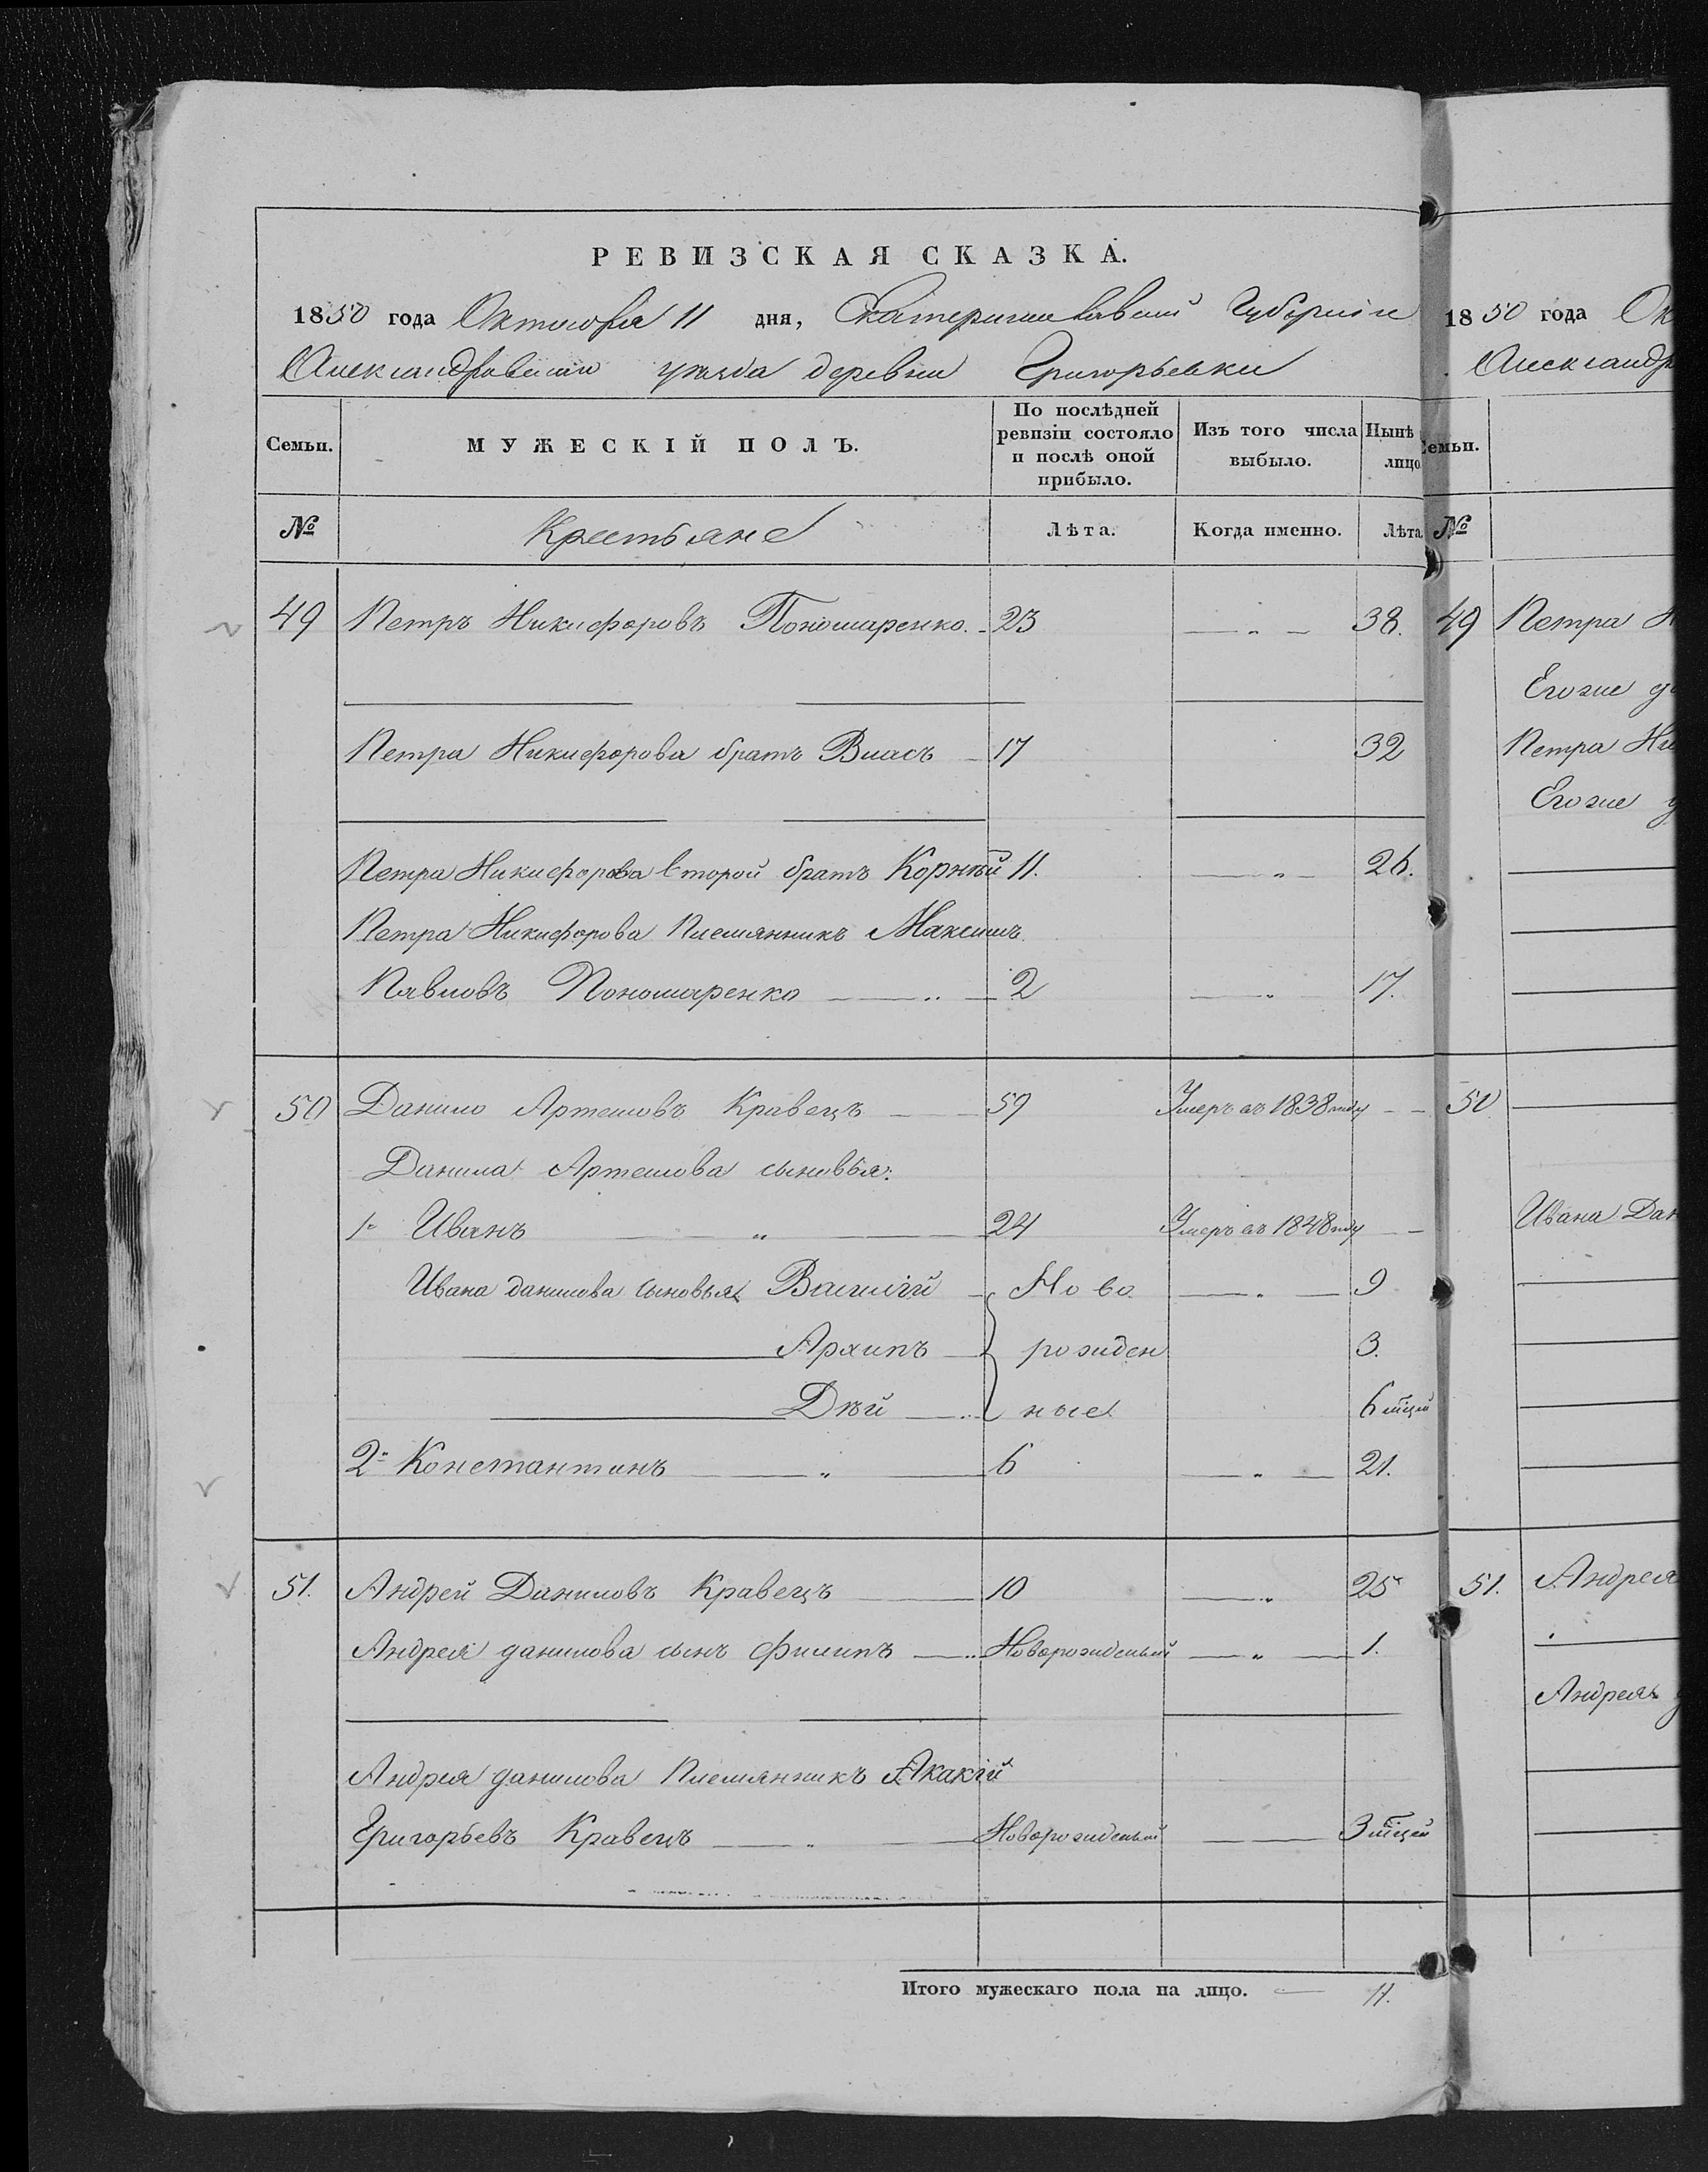 РЕВИЗСКАЯ СКАЗКА.
1850 года Октября 11 дня, Екатеринославской Губернии
Александровскаго уѣзда деревни Григорьевки
Семьи. МУЖЕСКІЙ ПОЛЪ. По послѣдней ревизіи состояло и послѣ оной прибыло. Изъ того числа выбыло. Нынѣ лицо
№ Крестьяне Лѣта. Когда именно. Лѣта
49 Петръ Никифоровъ Пономаренко. 23 — „ — 38.
Петра Никифорова братъ Власъ 17 32
Петра Никифорова второй братъ Корнѣй 11. — „ — 26.
Петра Никифорова Племянникъ Максимъ
Павловъ Пономаренко 2 — „ 17.
50 Данило Артемовъ Кравецъ 59 Умеръ въ 1838 году —
Данила Артемова сыновья:
1й Иванъ „ 24 Умеръ въ 1848 году —
Ивана данилова сыновья Василій Ново — „ — 9
Архипъ рожден 3.
Дѣй ные 6 мѣсяц
2й Константинъ „ 6 — „ — 21.
51. Андрей Даниловъ Кравецъ 10 — „ 25
Андрея данилова сынъ Филипъ Новорожденый — „ — 1.
Андрея данилова Племянникъ Акакій
Григорьевъ Кравецъ „ Новорожденый — 3 мѣсяц
Итого мужескаго пола на лицо. 11.
1850 года Ок
Александр
Семьи.
№
49 Петра Н
Егоже
Петра Ни
Егоже
50
Ивана Дан
51. Андрея
Андрея